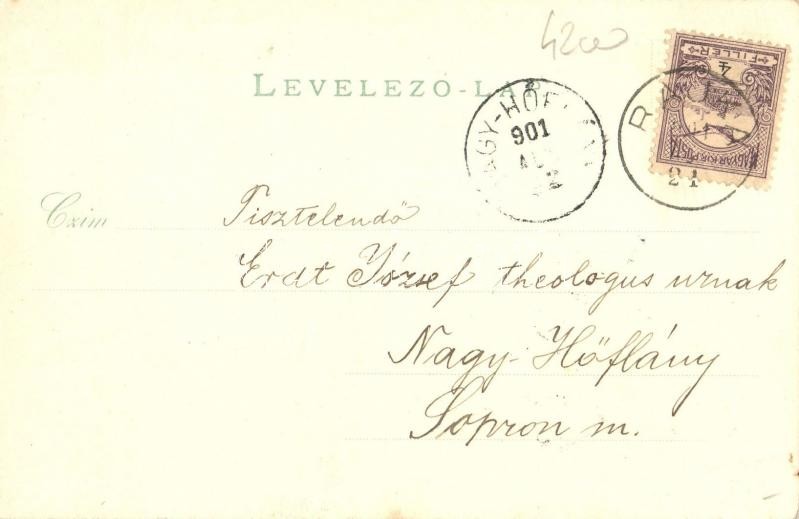 4200
LEVELEZŐ-LAP
FILLÉR
4
MAGYAR KIR. POSTA
901
21
Czim
Tisztelendő
Erdt József theologus urnak
Nagy-Höflány
Sopron m.